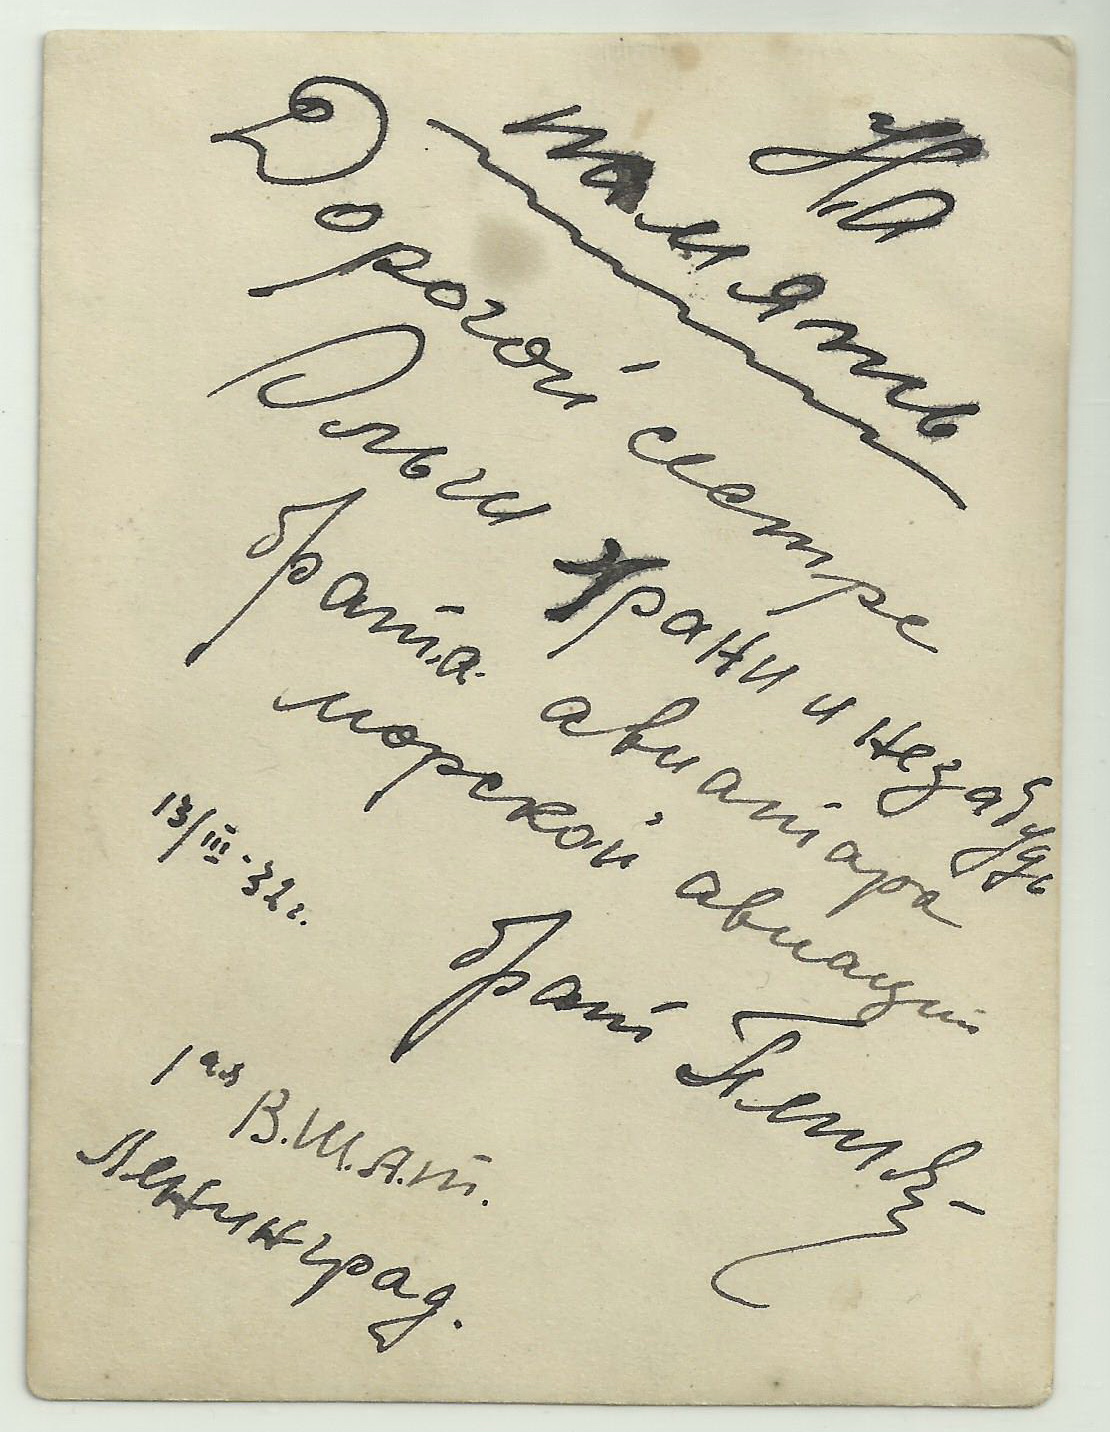 На память
Дорогой сестре
Ольги храни и незабудь
брата авиатара
морской авиации
брат
13/III-32г.
1ая В.Ш.А.Т.
Ленинград.